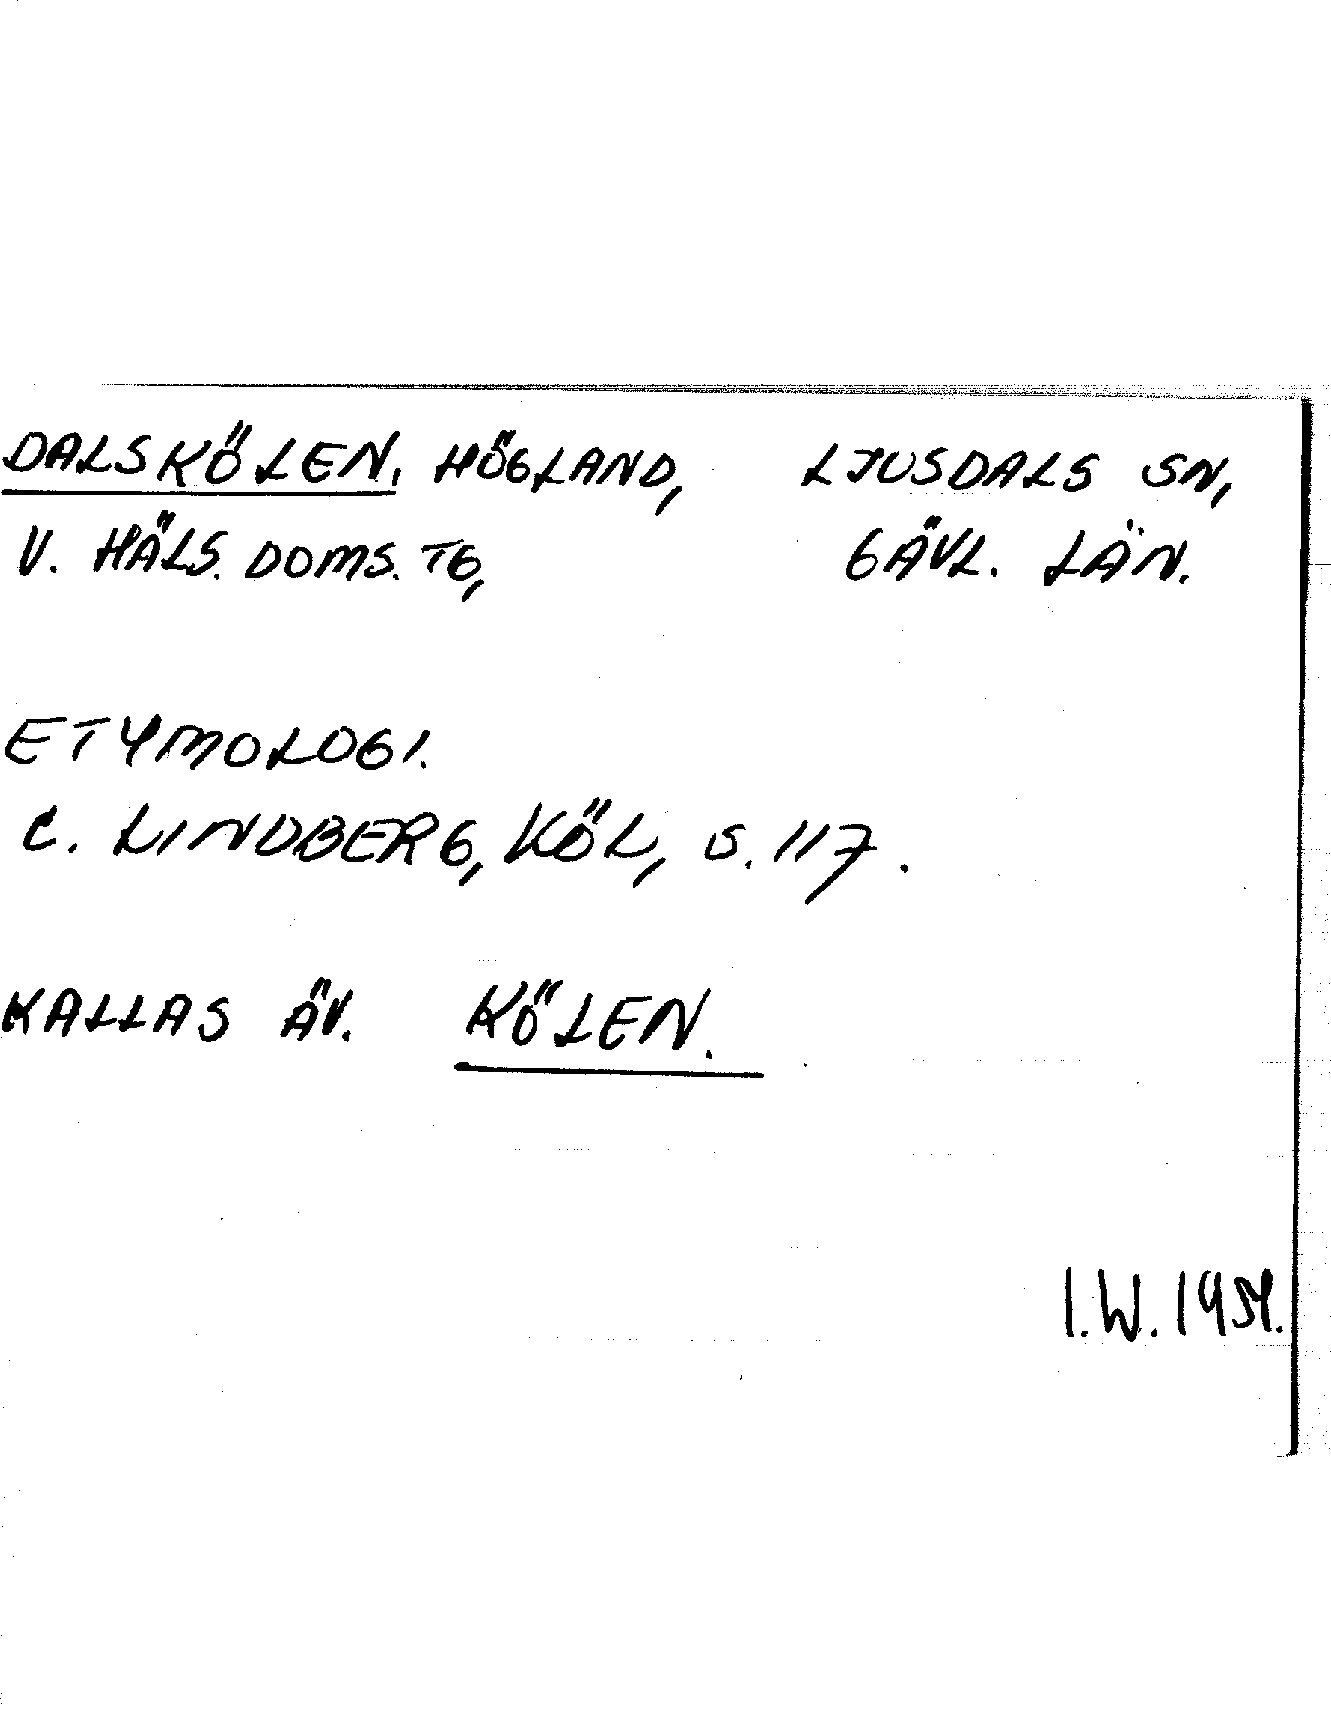 DALSKÖLEN, HÖGLAND, LJUSDALS SN,
V. HÄLS. DOMS. TG, GÄVL. LÄN.
ETYMOLOGI.
C. LINDBERG, KÖL, S. 117.
KALLAS ÄV. KÖLEN.
I.W. 1954.